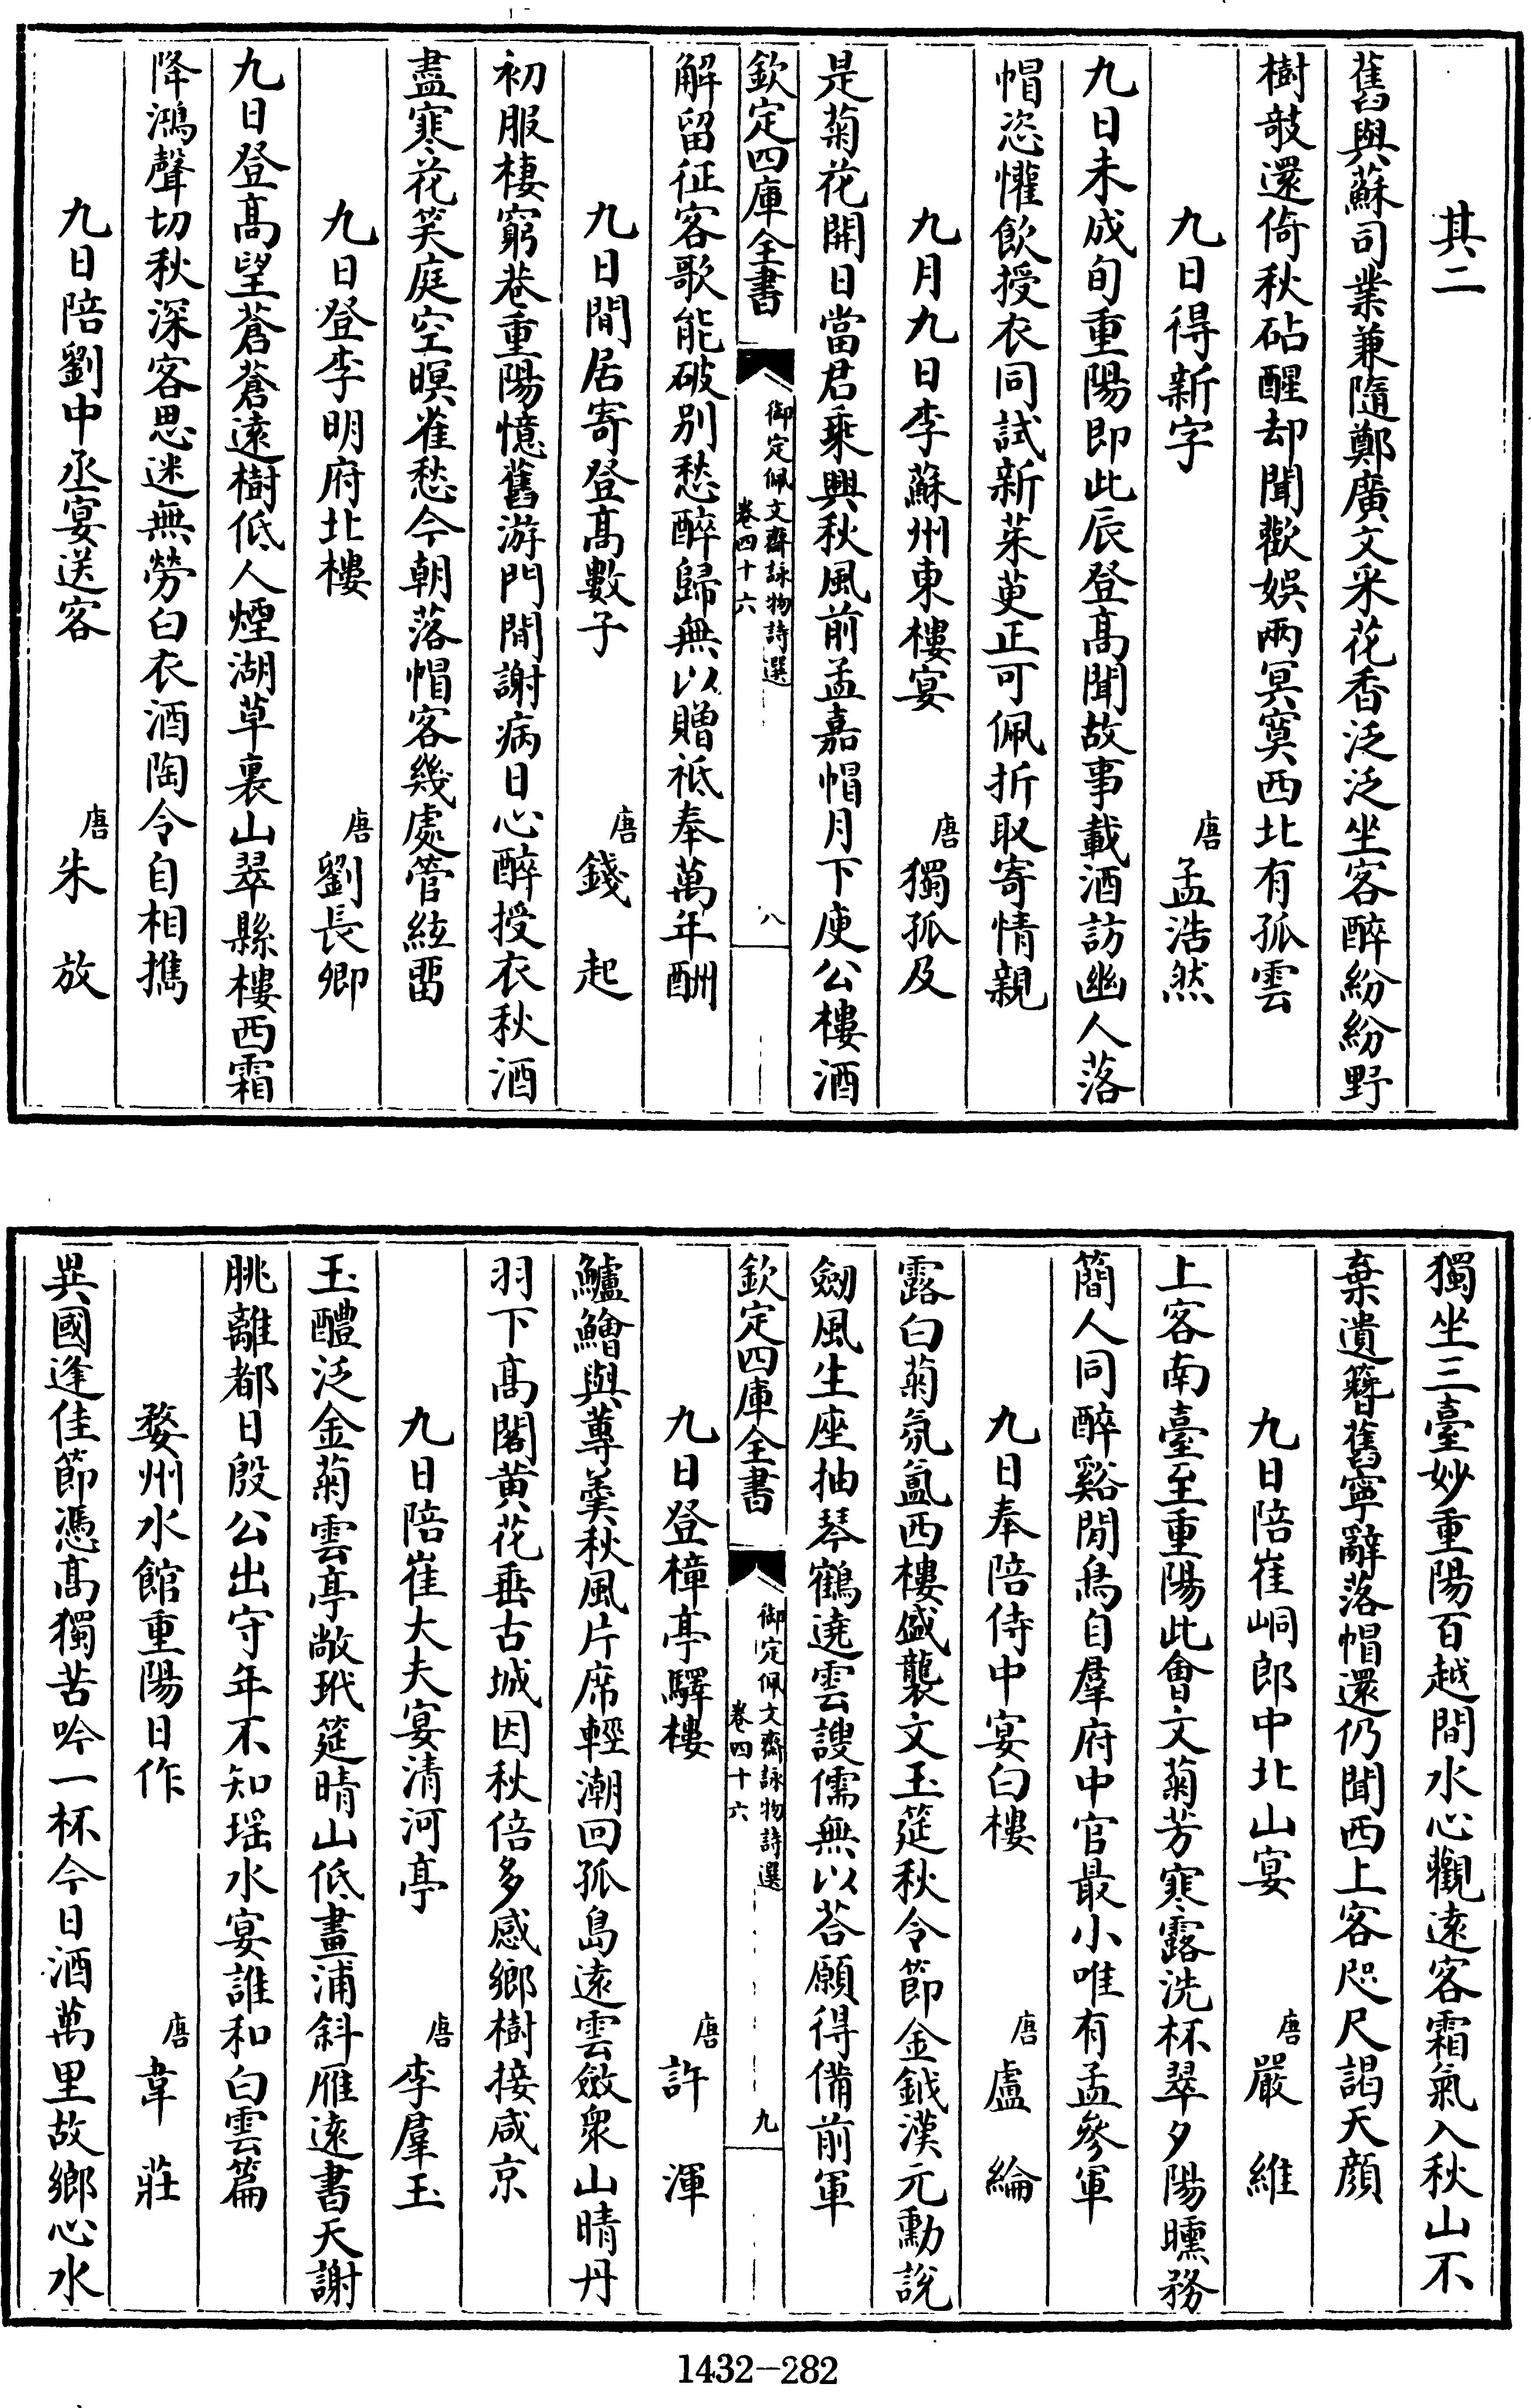 其二
舊與蘇司業兼隨鄭廣文采花香泛泛坐客醉紛紛野
樹攲還倚秋砧醒却聞歡娛兩冥寞西北有孤雲
九日得新字 唐 孟浩然
九日未成旬重陽即此辰登高聞故事載酒訪幽人落
帽恣懽飲授衣同試新茱萸正可佩折取寄情親
九月九日李蘇州東樓宴 唐 獨孤及
是菊花開日當君乘興秋風前孟嘉帽月下庾公樓酒
欽定四庫全書 御定佩文齋詠物詩選 卷四十六 八
解留征客歌能破别愁醉歸無以贈祗奉萬年酬
九日閒居寄登高數子 唐 錢起
初服棲窮巷重陽憶舊游門閒謝病日心醉授衣秋酒
盡寒花笑庭空暝雀愁今朝落帽客幾處管絃留
九日登李明府北樓 唐 劉長卿
九日登高望蒼蒼遠樹低人煙湖草裏山翠縣樓西霜
降鴻聲切秋深客思迷無勞白衣酒陶令自相攜
九日陪劉中丞宴送客 唐 朱放
獨坐三臺妙重陽百越間水心觀遠客霜氣入秋山不
棄遺簪舊寧辭落帽還仍聞西上客咫尺謁天顔
九日陪崔峒郎中北山宴 唐 嚴維
上客南臺至重陽此會文菊芳寒露洗杯翠夕陽曛務
簡人同醉谿閒鳥自羣府中官最小唯有孟參軍
九日奉陪侍中宴白樓 唐 盧綸
露白菊氛氲西樓盛襲文玉筵秋令節金鉞漢元勳說
劒風生座抽琴鶴遶雲謏儒無以荅願得備前軍
欽定四庫全書 御定佩文齋詠物詩選 卷四十六 九
九日登樟亭驛樓 唐 許渾
鱸鱠與蓴羹秋風片席輕潮回孤島遠雲斂衆山晴丹
羽下高閣黄花垂古城因秋倍多感鄉樹接咸京
九日陪崔大夫宴清河亭 唐 李羣玉
玉醴泛金菊雲亭敞玳筵晴山低畫浦斜雁遠書天謝
朓離都日殷公出守年不知瑶水宴誰和白雲篇
婺州水館重陽日作 唐 韋莊
異國逢佳節憑高獨苦吟一杯今日酒萬里故鄉心水
1432-282